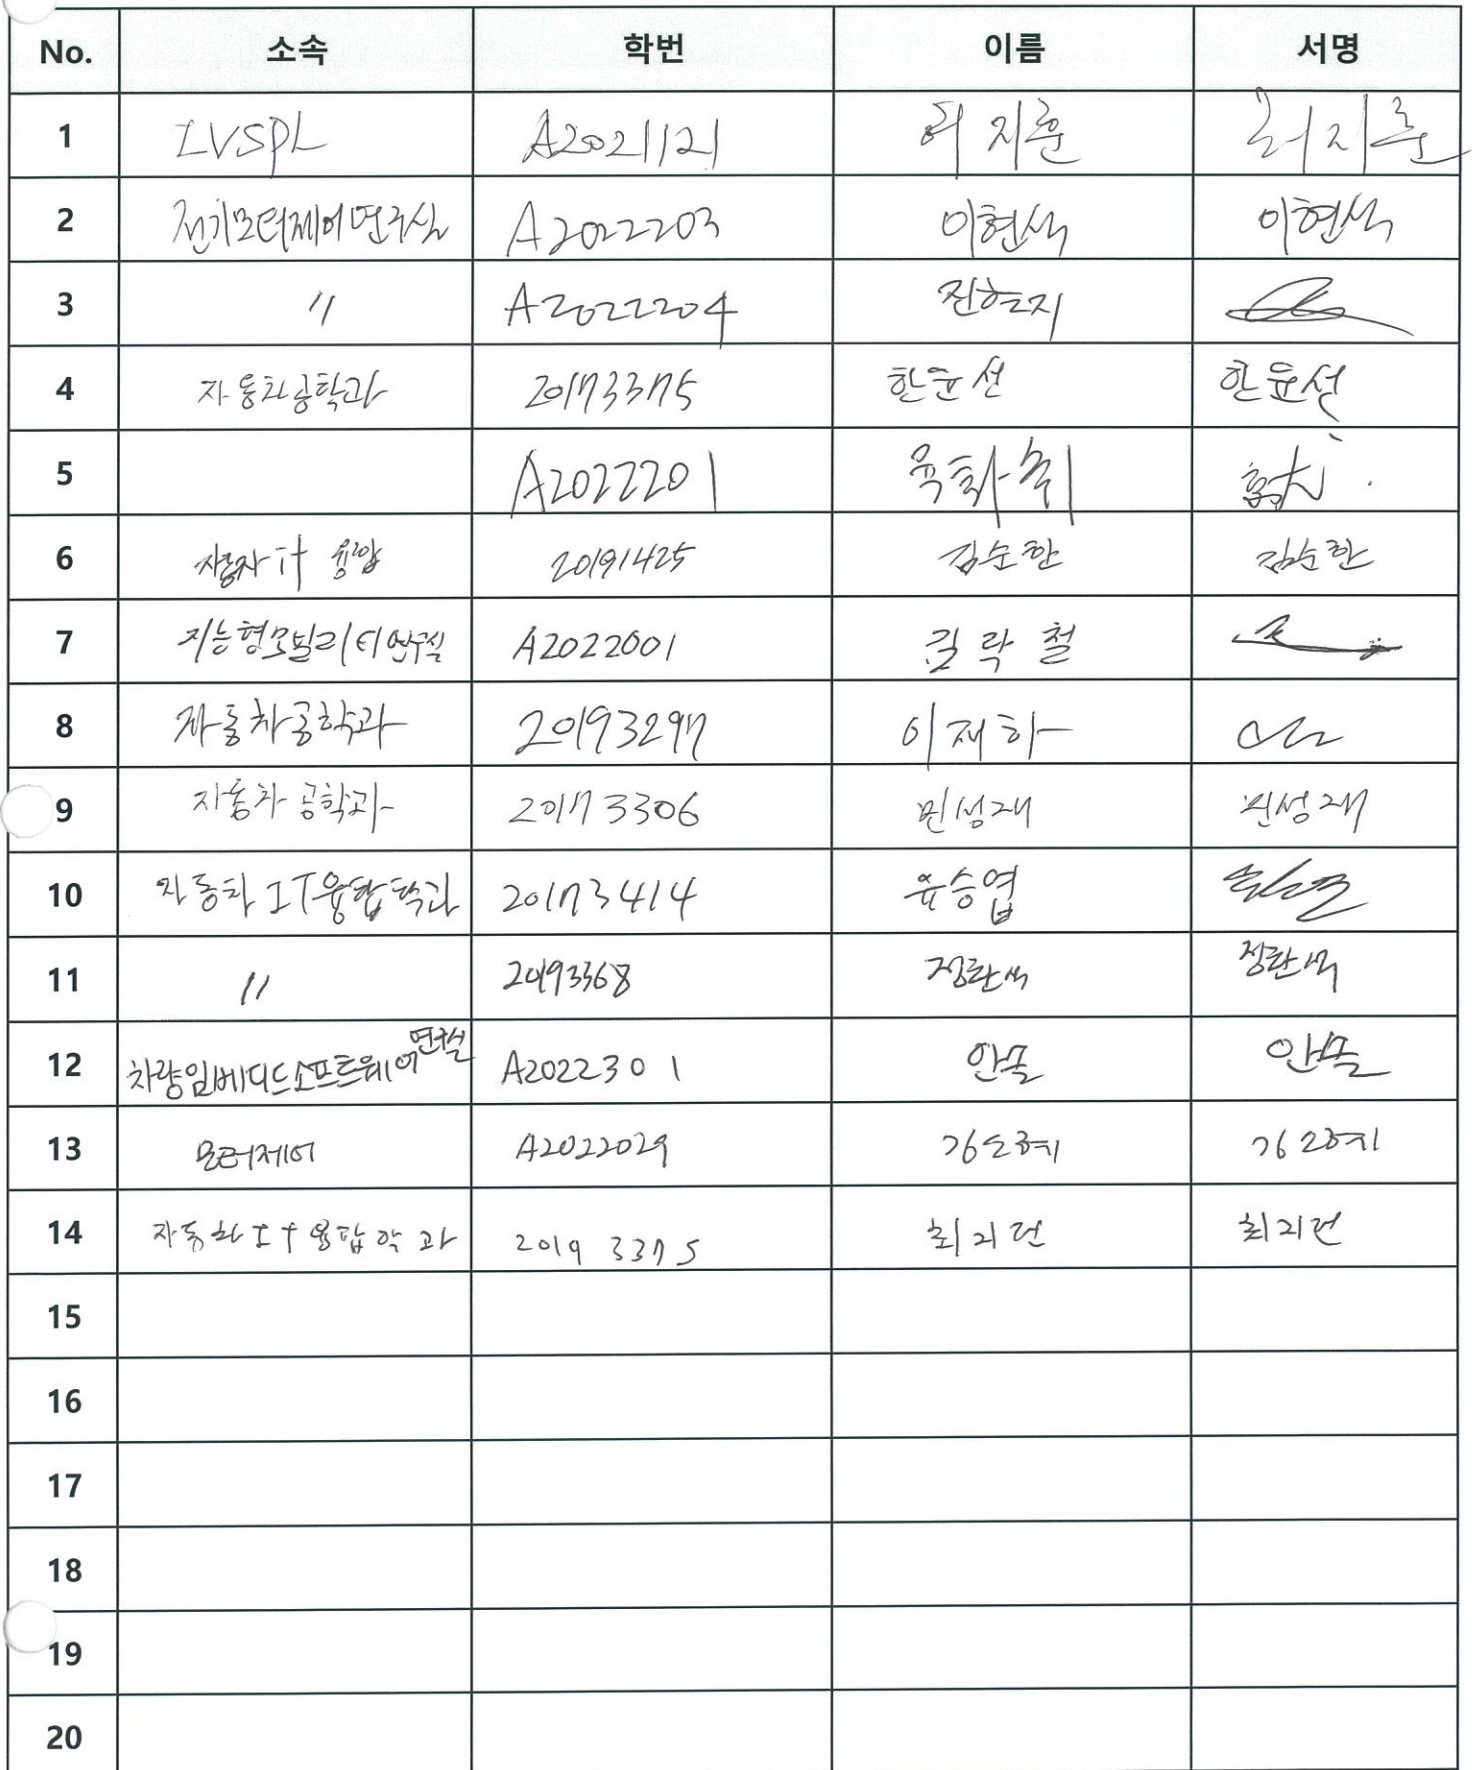 No. 소속 학번 이름 서명
1 IVSPL A2021121 허지훈 허지훈
2 전기모터제어연구실 A2022203 이현석 이현석
3 〃 A2022204 진현지
4 자동차공학과 20173375 한윤선 한윤선
5 A2022201
6 자동차 IT 융합 20191425 김순한 김순한
7 지능형모빌리티연구실 A2022001 김락철
8 자동차공학과 20193297 이재하
9 자동차공학과 20173306 민성재 민성재
10 자동차IT융합학과 20173414 유승엽
11 〃 20193368
12 차량임베디드소프트웨어연구실 A2022301
13 모터제어 A2022029
14 자동차IT융합학과 2019 3375
15
16
17
18
19
20